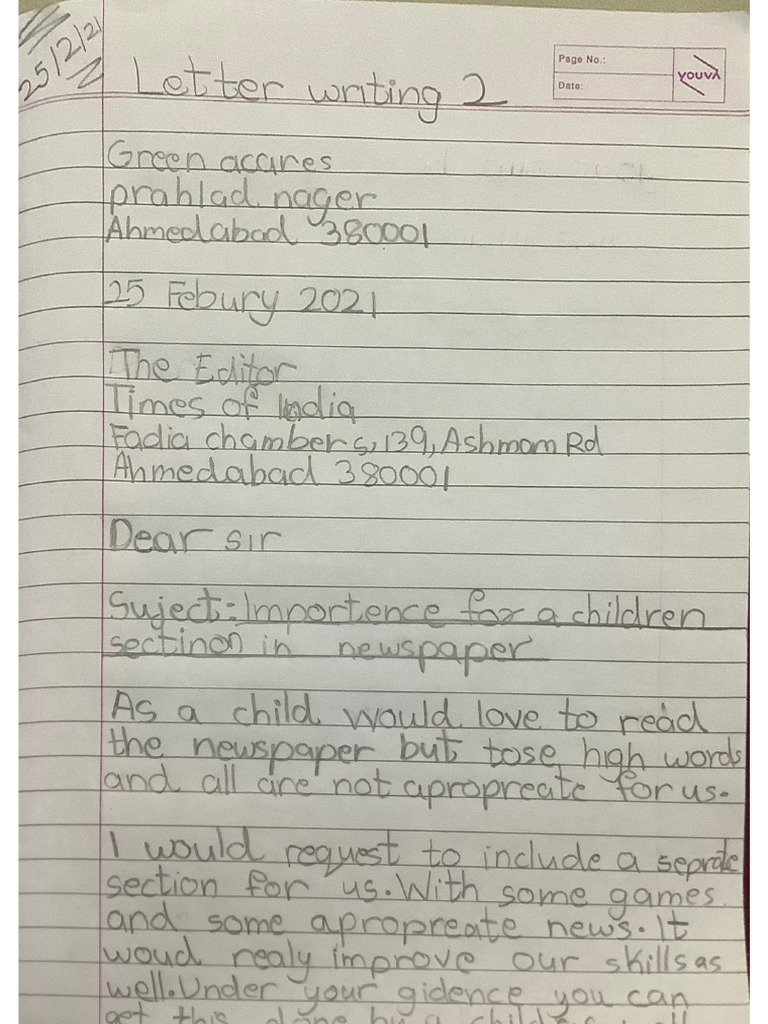 25/2/21
Letter writing 2
Page No.:
Date:
YOUVA
Green acares
prahlad nager
Ahmedabad 380001
25 Febury 2021
The Editor
Times of India
Fadia chambers, 139, Ashmom Rd
Ahmedabad 380001
Dear sir
Suject:Importence for a children
sectinon in newspaper
As a child would love to read
the newspaper but tose high words
and all are not apropreate for us.
I would request to include a seprate
section for us. With some games
and some apropreate news. It
woud realy improve our skills as
well. Under your gidence you can
get this done by a